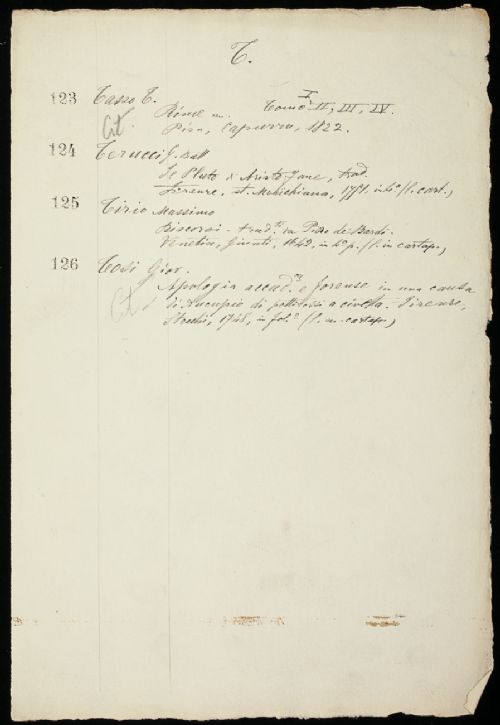 T.
123 Tasso T.
Rime Tomo I, II, III, IV.
Cit
Pisa, Capurro, 1822.
124 Terucci G. Batt
Le Pluto d'Aristofane, trad.
Firenze, st. Moückiana, 1751. in 4° (l. cart.,
125 Tirio Massimo
Discorsi - trad. da Piero de Bardi.
Venetia, Giunti, 1642, in 4° p. (l. in cartap.,
126 Tosi Giov.
Apologia accad.ca e forense in una causa
Cit
di Aucupio di pettirossi a civetta. Firenze,
Stecchi, 1748, in fol.° (l. in cartap.,